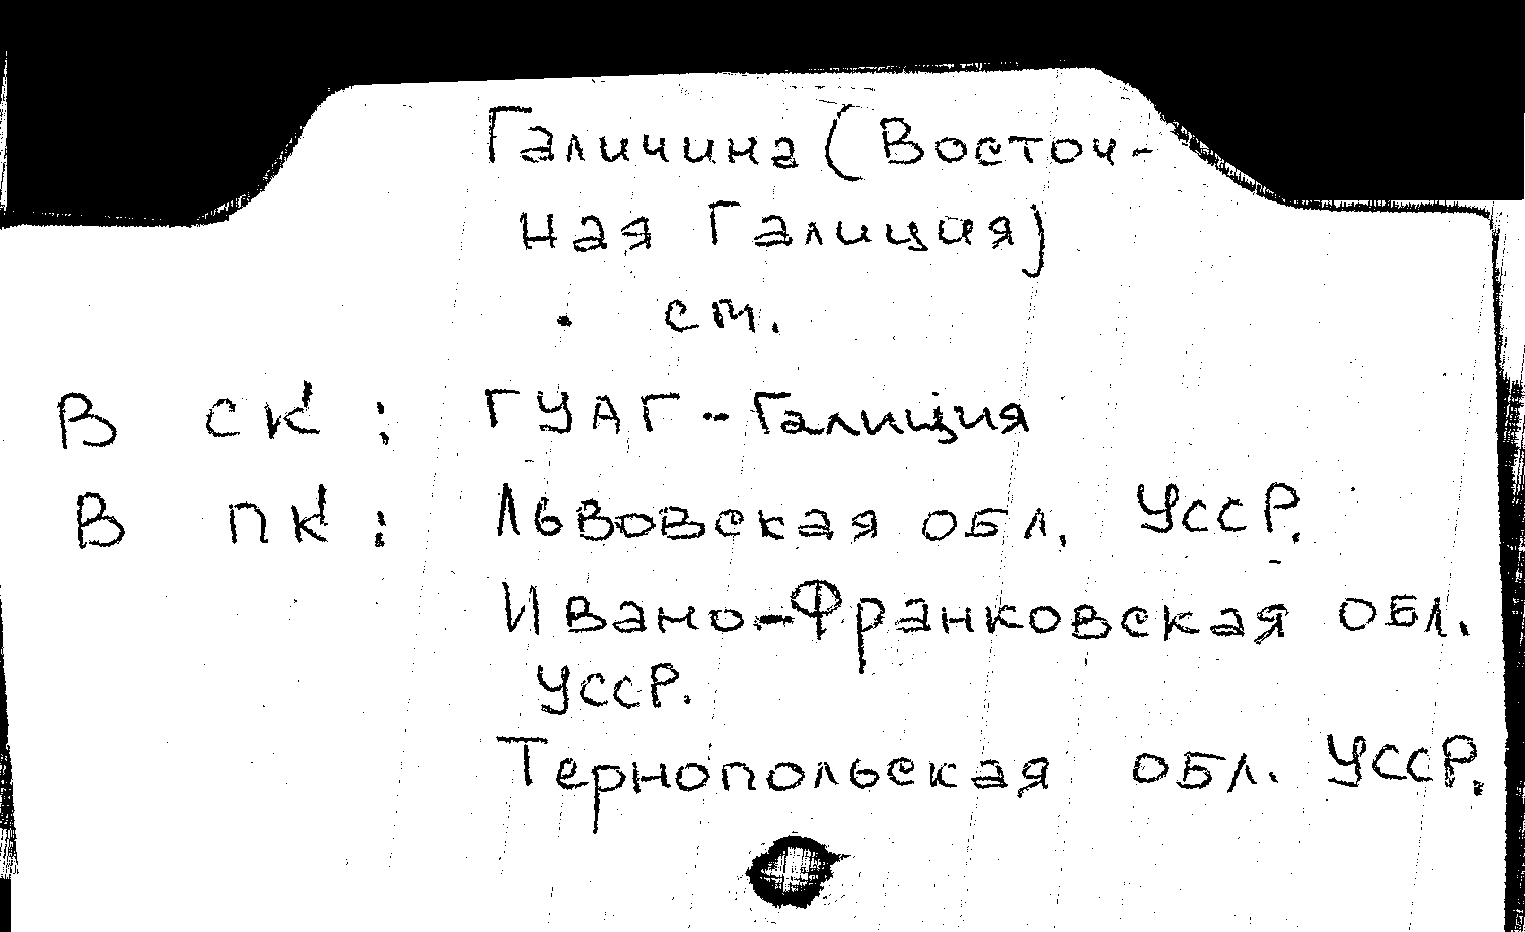 Галичина (Восточ-
ная Галиция)
. см.
В СК: ГУАГ - Галиция
В ПК: Львовская обл. УССР.
Ивано-Франковская обл.
УССР.
Тернопольская обл. УССР.